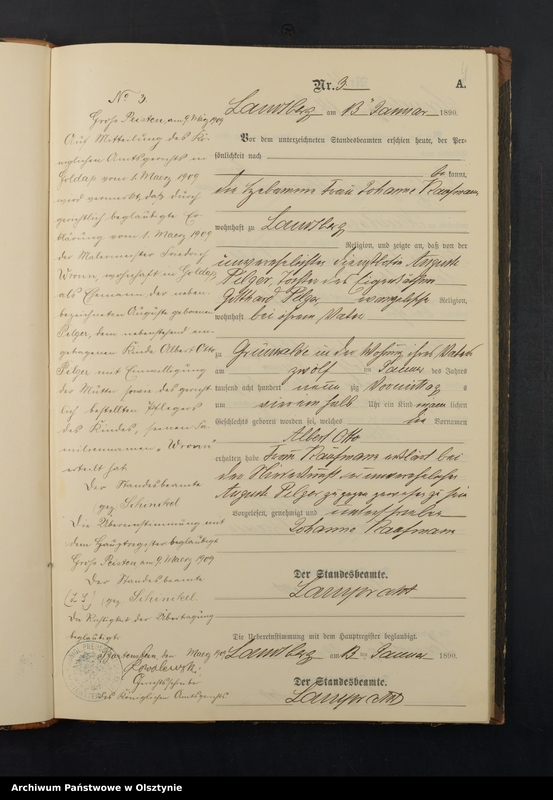 Nr. 3
A.
Landsberg am 13ten Januar 1890.
Vor dem unterzeichneten Standesbeamten erschien heute, der Per-
sönlichkeit nach
be kannt,
die Hebamme Frau Johanne Kaufmann
wohnhaft zu Landsberg
Religion, und zeigte an, daß von der
unverehelichten Auguste
Pelzer, Tochter des
Gotthard Pelzer, evangelischer Religion,
wohnhaft bei ihrem Vater
zu Grünwalde in der Wohnung ihres Vaters
am zwölften Januar des Jahres
tausend acht hundert neun zig Vormittags
um ein halb Uhr ein Kind männlichen
Geschlechts geboren worden sei, welches die Vornamen
Albert Otto
erhalten habe. Frau Kaufmann erklärt bei
der Niederkunft der unverehelichten
Auguste Pelzer zugegen gewesen zu sein
Vorgelesen, genehmigt und unterschrieben
Johanne Kaufmann
Der Standesbeamte.
Die Uebereinstimmung mit dem Hauptregister beglaubigt.
Landsberg am 13ten Januar 1890.
Der Standesbeamte.
No 3.
Groß Peisten, am 9. März 1909
Auf Mitteilung des Kö-
niglichen Amtsgerichts in
Goldap vom 1. Maerz 1909
wird vermerkt, daß durch
gerichtlich beglaubigte Er-
klärung vom 1. Maerz 1909
der Malermeister Friedrich
wohnhaft in Goldap,
als Ehemann der neben-
bezeichneten Auguste geborenen
Pelzer, dem nebenstehend ein-
getragenen Kinde Albert Otto
Pelzer mit Einwilligung
der Mutter sowie des gericht-
lich bestellten Pflegers
des Kindes, seinen Fa-
miliennamen
erteilt hat.
Der Standesbeamte
gez. Schenkel
Die Übereinstimmung mit
dem Hauptregister beglaubigt
Groß Peisten, am 9. Maerz 1909
Der Standesbeamte
gez. Schenkel.
Die Richtigkeit der Übertragung
beglaubigt
Bartenstein, den Maerz 1909
Kowalewski
Gerichtsschreiber
des Königlichen Amtsgerichts
Archiwum Państwowe w Olsztynie